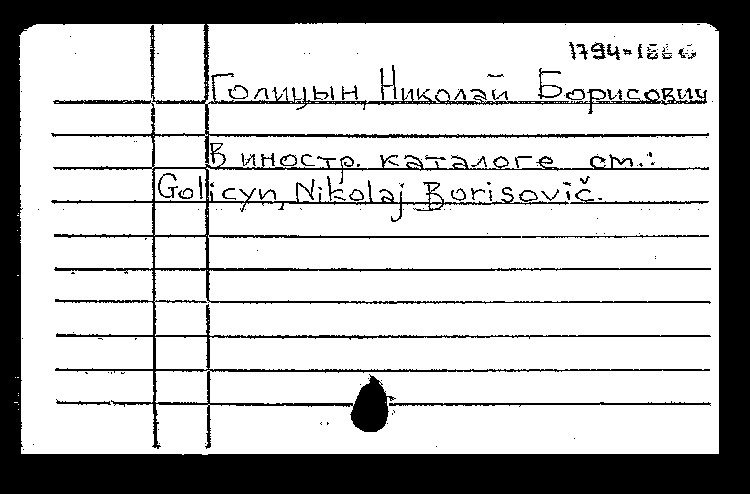 1794-1866
Голицын, Николай Борисович
В иностр. каталоге см.:
Golicyn, Nikolaj Borisovič.